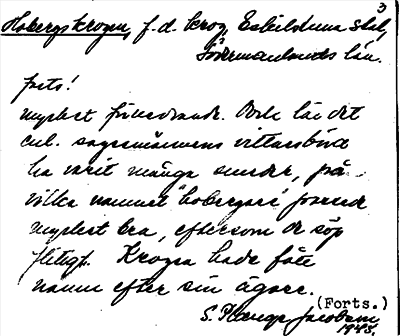 3
Hobergskrogen, f.d. krog, Eskilstuna stad,
Södermanlands län.
forts!
mycket förändrade. Dock lär det
enl. sagesmännens vittnesbörd
ha varit många smeder, på
vilka namnet "hobergare" passade
mycket bra, eftersom de söp
flitigt. Krogen hade fått
namn efter sin ägare.
(Forts.)
S. Plænge Jacobson
1945.